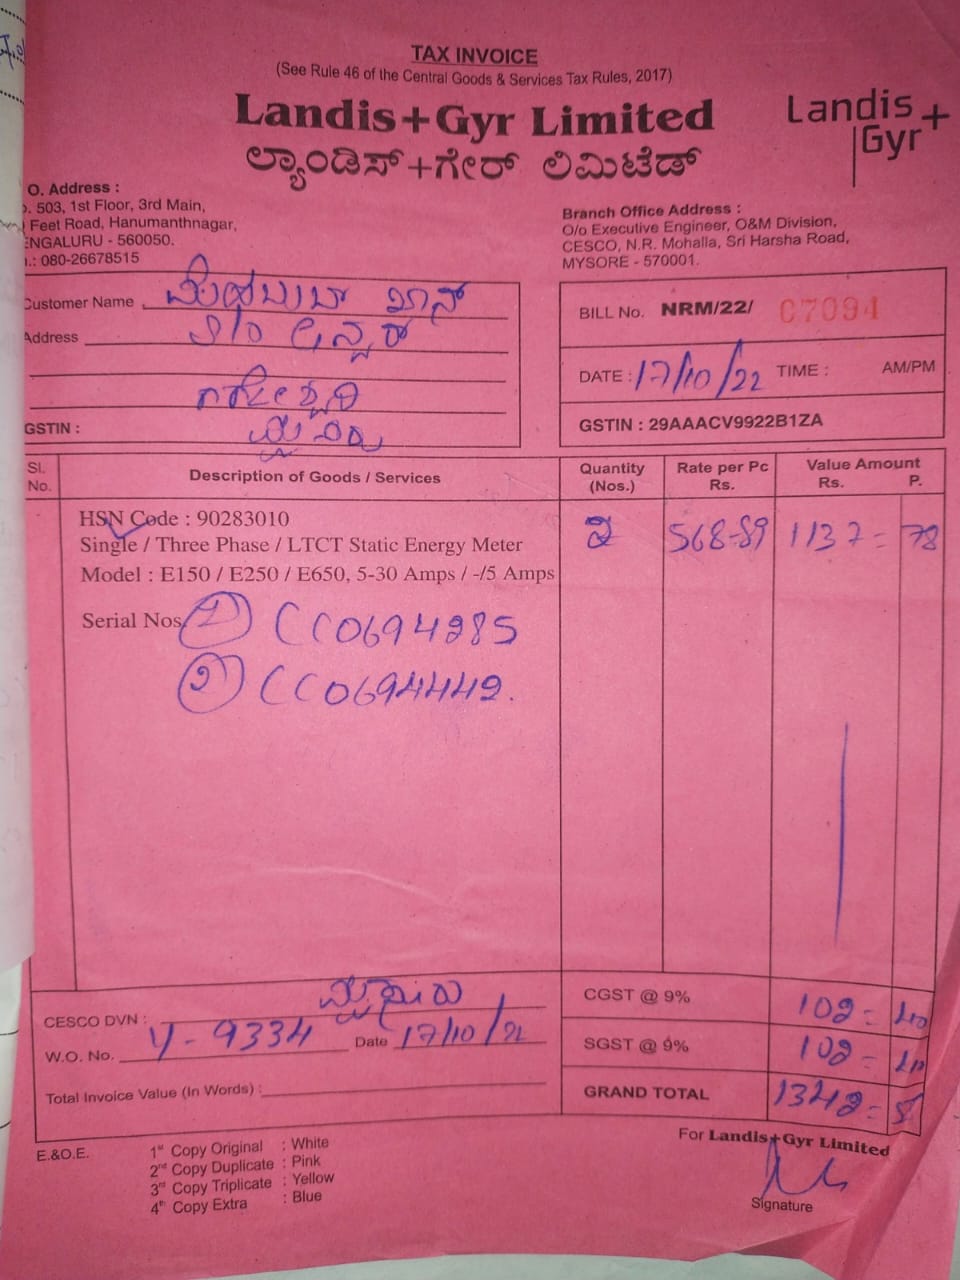 TAX INVOICE
(See Rule 46 of the Central Goods & Services Tax Rules, 2017)
Landis+Gyr Limited
ಲ್ಯಾಂಡಿಸ್+ಗೇರ್ ಲಿಮಿಟೆಡ್
Landis+
Gyr
O. Address :
. 503, 1st Floor, 3rd Main,
Feet Road, Hanumanthnagar,
ENGALURU - 560050.
.: 080-26678515
Branch Office Address :
O/o Executive Engineer, O&M Division,
CESCO, N.R. Mohalla, Sri Harsha Road,
MYSORE - 570001.
Customer Name ಮೆಹಬುಬ್ ಖಾನ್
Address S/o
GSTIN :
BILL No. NRM/22/ 07094
DATE : 17/10/22 TIME : AM/PM
GSTIN : 29AAACV9922B1ZA
Sl. No. Description of Goods / Services Quantity (Nos.) Rate per Pc Rs. Value Amount Rs. P.
HSN Code : 90283010
Single / Three Phase / LTCT Static Energy Meter 2 568-89 1137= 78
Model : E150 / E250 / E650, 5-30 Amps / -/5 Amps
Serial Nos. 1) CC0694285
2) CC0694442.
CESCO DVN : ಮೈಸೂರು
W.O. No. 4-9334 Date 17/10/22
Total Invoice Value (In Words) :
CGST @ 9% 102= 40
SGST @ 9% 102= 40
GRAND TOTAL 1342=
E.&O.E.
1st Copy Original : White
2nd Copy Duplicate : Pink
3rd Copy Triplicate : Yellow
4th Copy Extra : Blue
For Landis+Gyr Limited
Signature